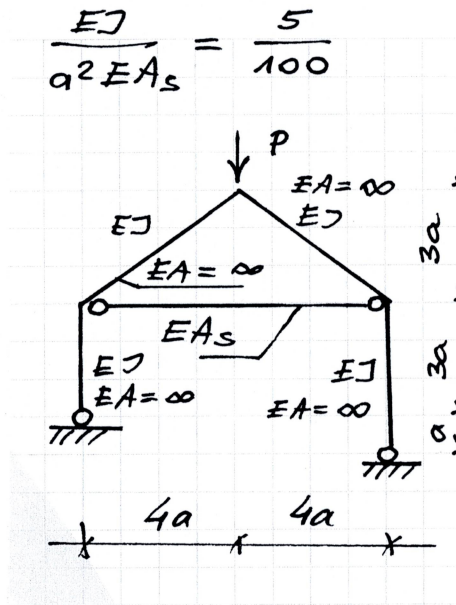 EJ / a² EAs = 5 / 100
P
EA = ∞
EJ
EJ
EA = ∞
3a
EAs
EJ
EA = ∞
EJ
EA = ∞
3a
a
4a
4a